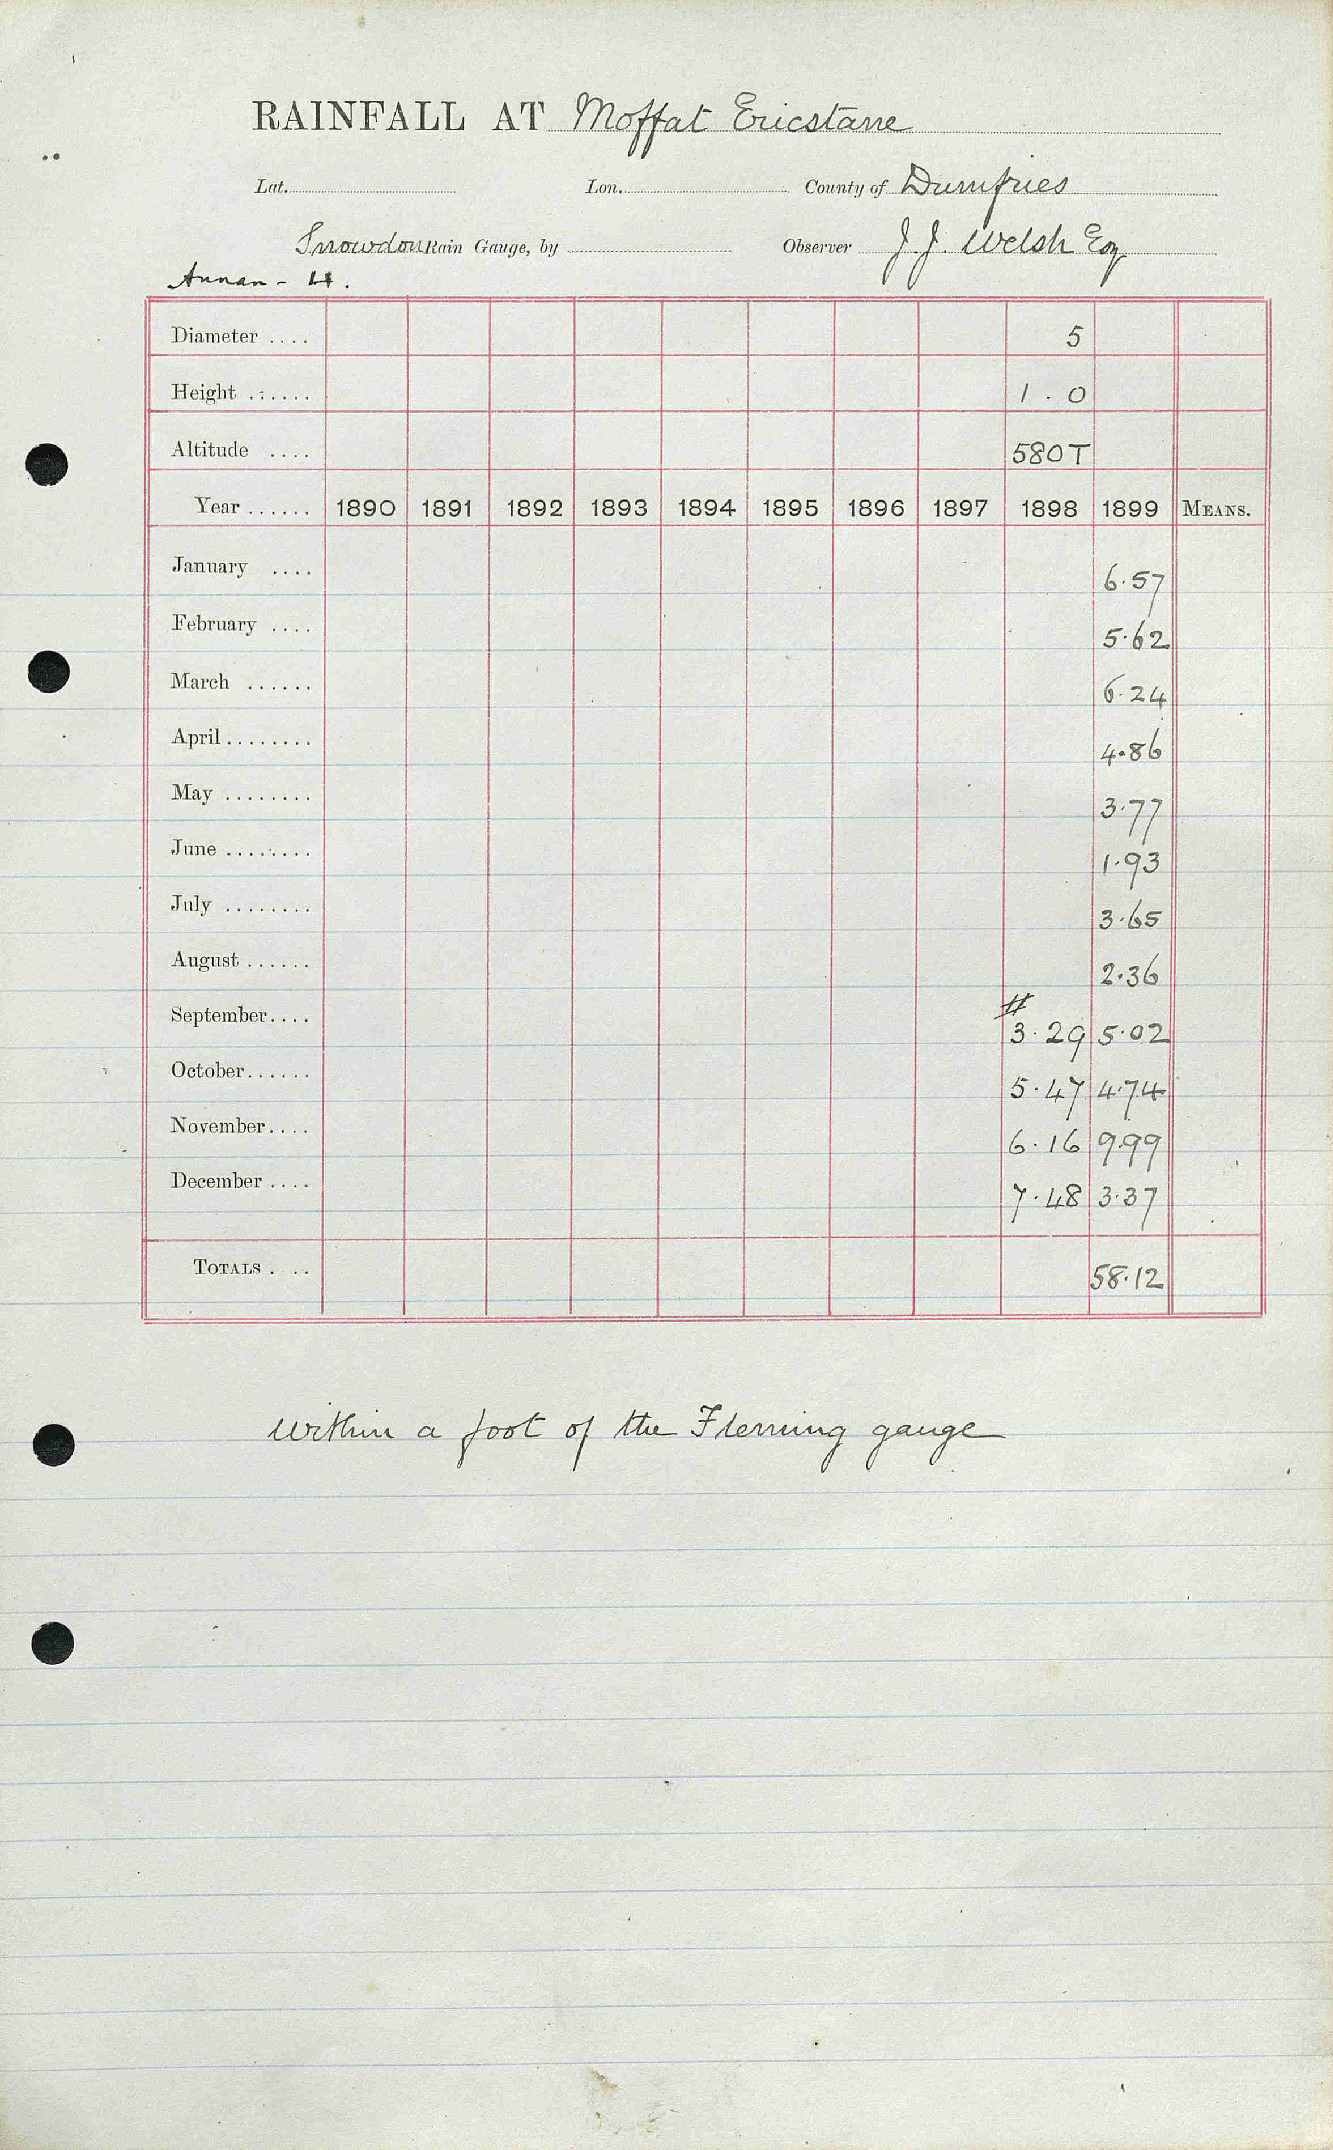 RAINFALL AT Moffat Ericstane
Lat. Lon. County of Dumfries
Snowdon Rain Gauge, by Observer J J. Welsh Esq
Annan - 4.
Diameter .... 5
Height ...... 1 . 0
Altitude .... 580 T
Year ...... 1890 1891 1892 1893 1894 1895 1896 1897 1898 1899 MEANS.
January .... 6.57
February .... 5.62
March ...... 6.24
April ........ 4.86
May ........ 3.77
June ........ 1.93
July ........ 3.65
August ...... 2.36
September.... # 3.29 5.02
October...... 5.47 4.74
November.... 6.16 9.99
December .... 7.48 3.37
TOTALS .... 58.12
Within a foot of the Fleming gauge